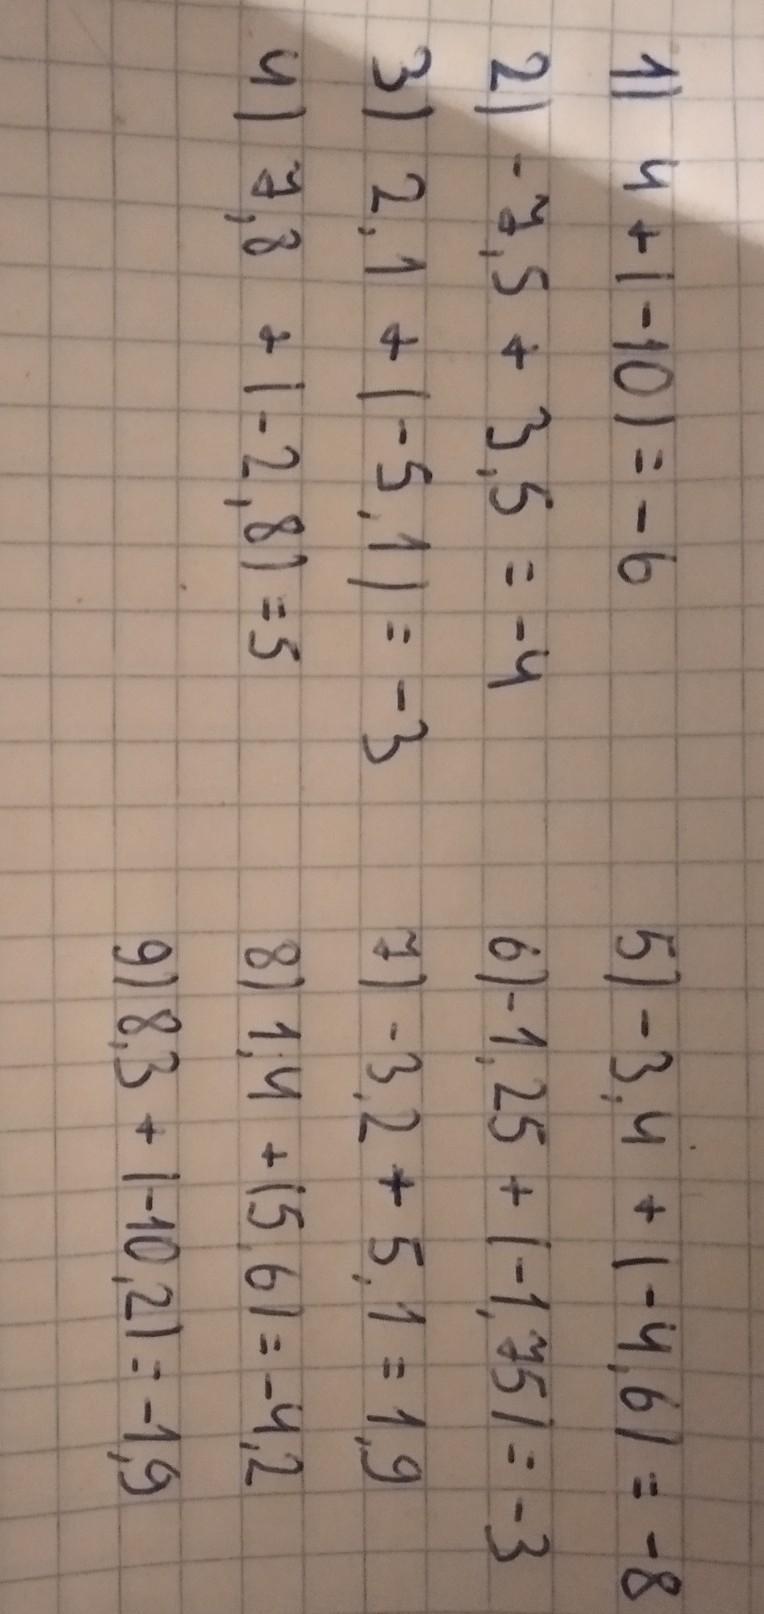 1) 4 + (-10) = -6
2) -7,5 + 3,5 = -4
3) 2,1 + (-5,1) = -3
4) 7,8 + (-2,8) = 5
5) -3,4 + (-4,6) = -8
6) -1,25 + (-1,75) = -3
7) -3,2 + 5,1 = 1,9
8) 1,4 + (5,6) = -4,2
9) 8,3 + (-10,2) = -1,9